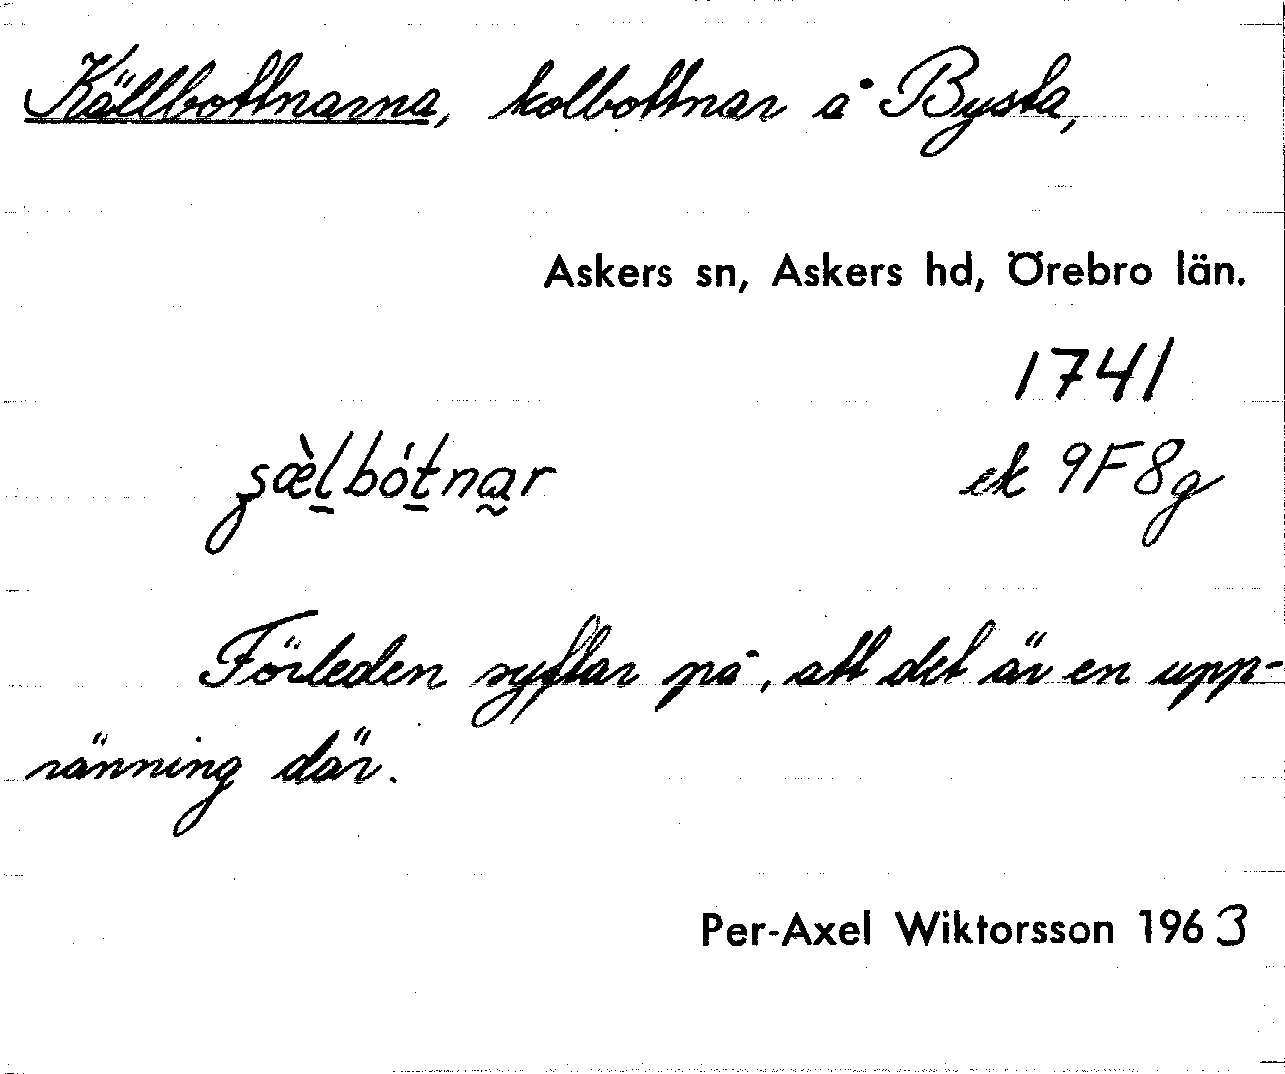 Källbottnarna, kolbottnar å Bysta,
Askers sn, Askers hd, Örebro län.
1741
ek 9F8g
Förleden syftar på, att det är en upp-
ränning där.
Per-Axel Wiktorsson 1963